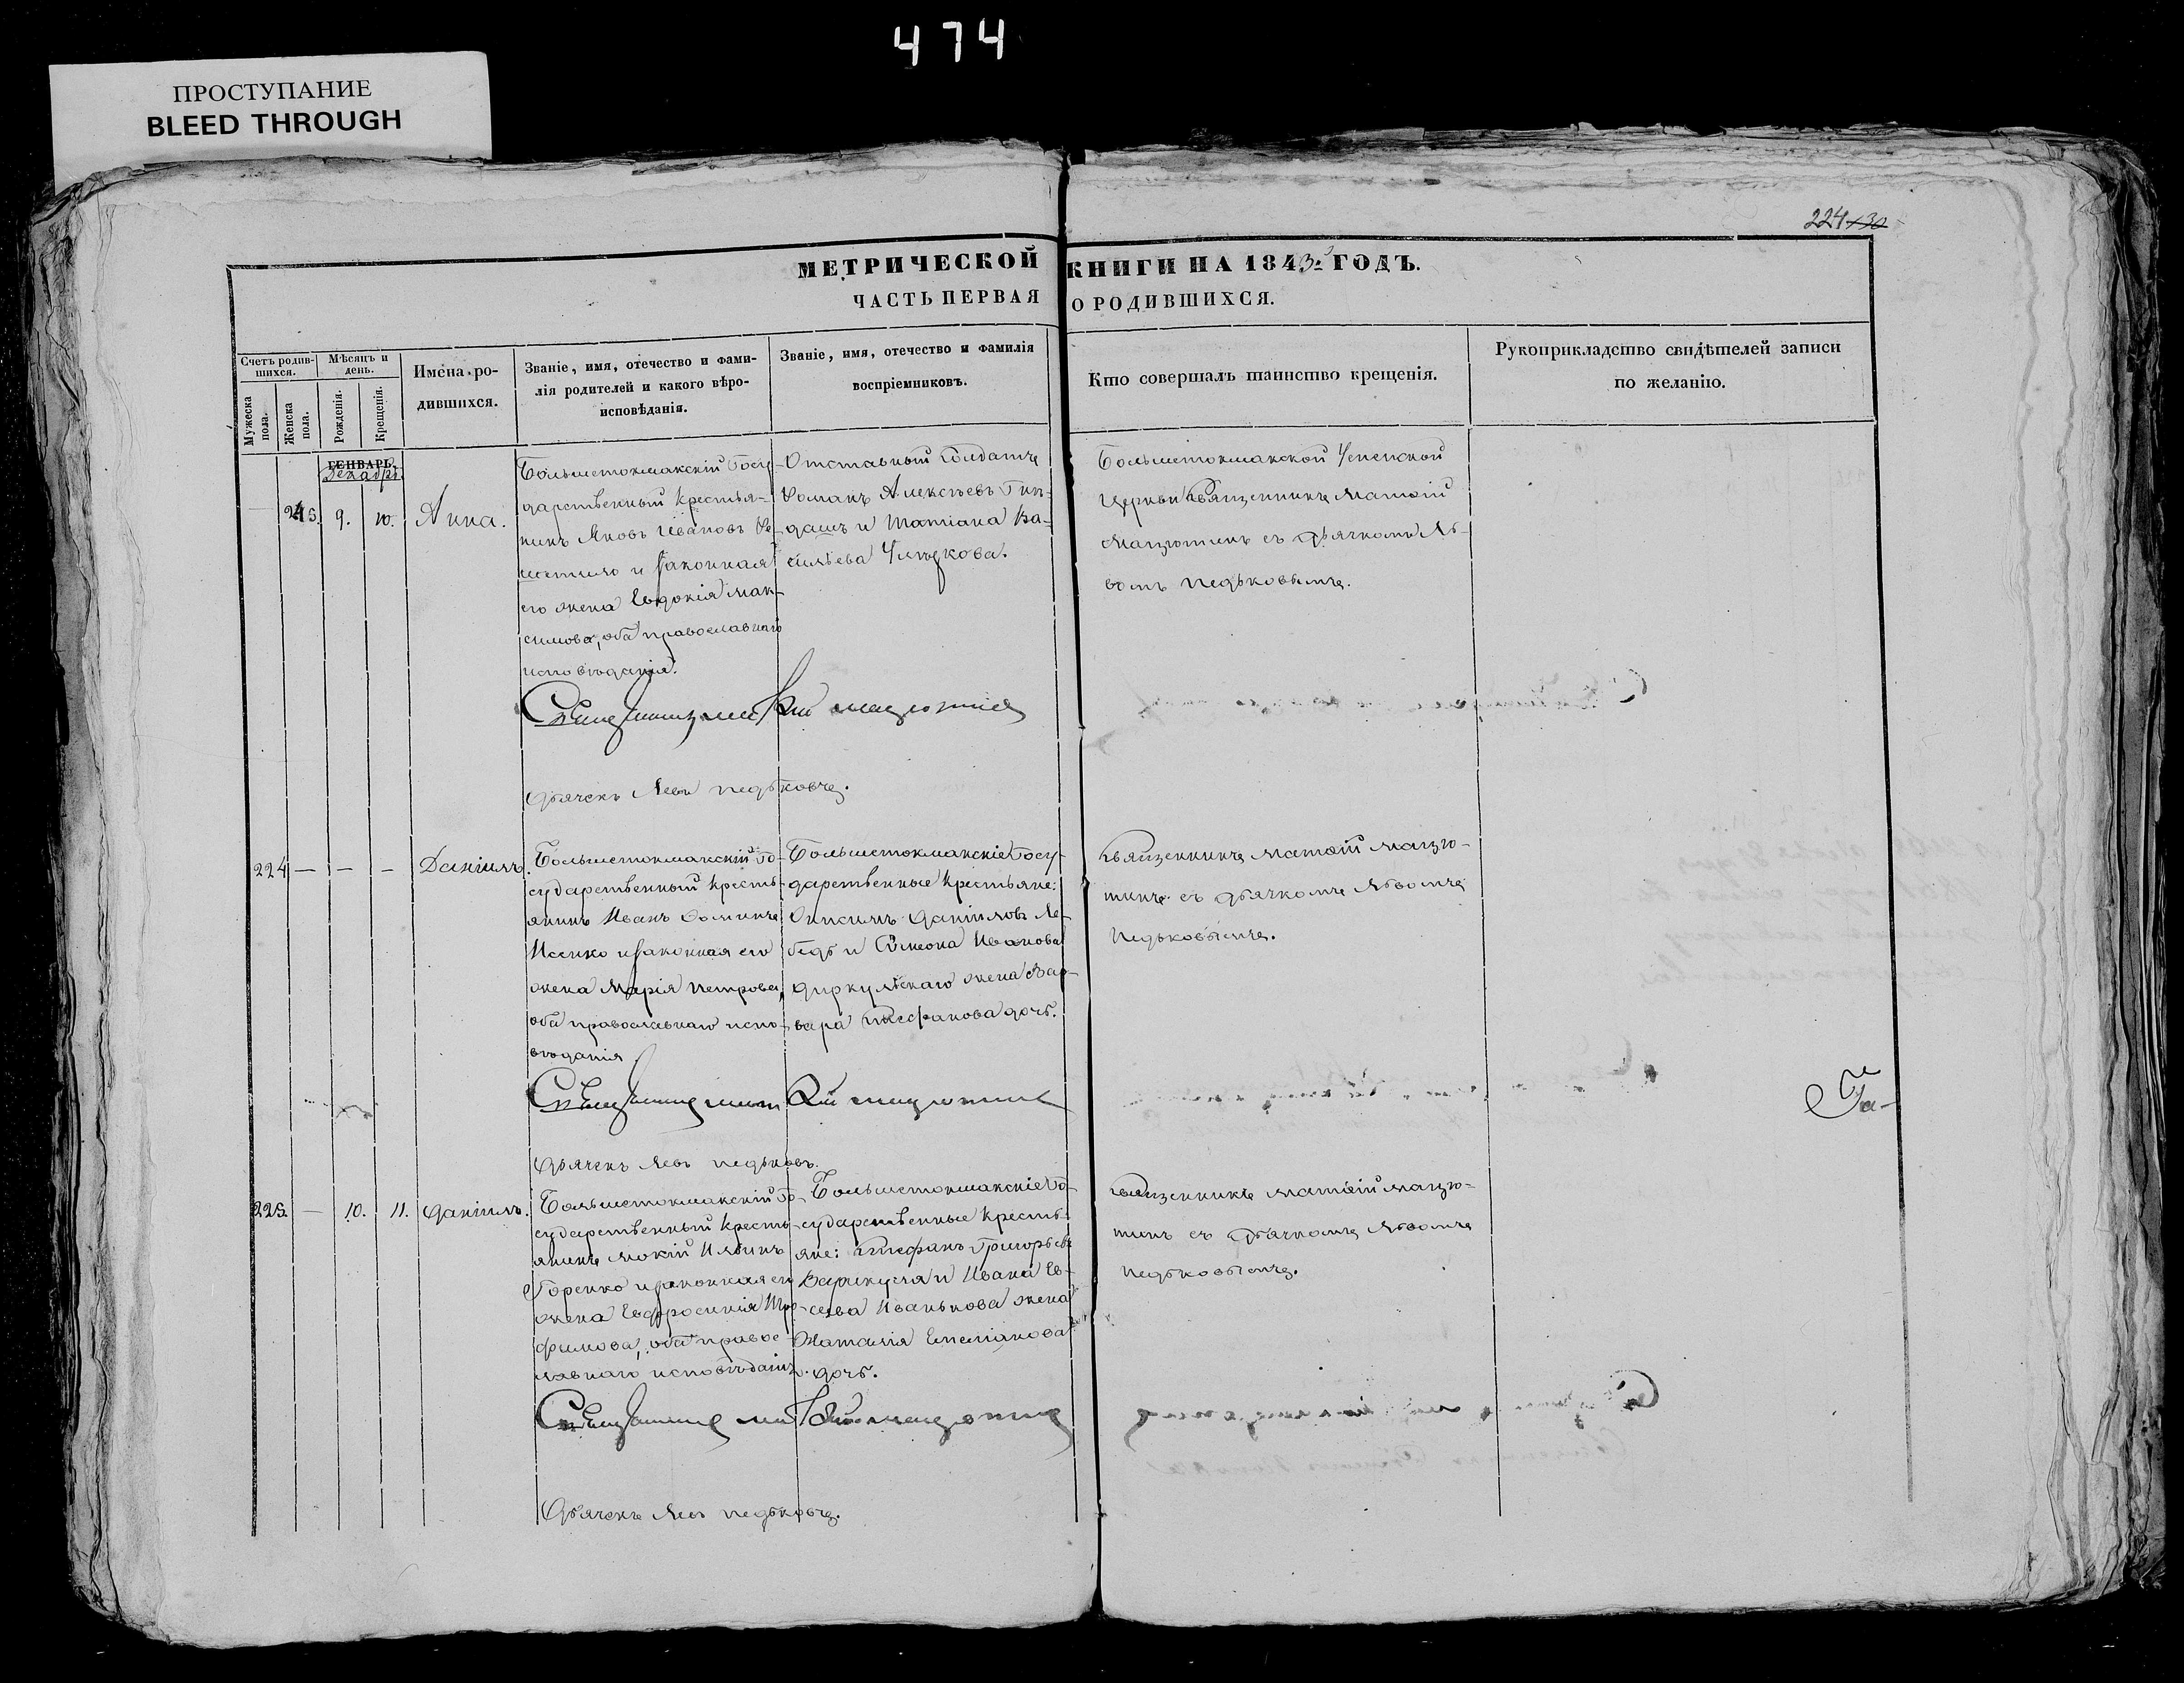 474
ПРОСТУПАНИЕ
BLEED THROUGH
224 130
МЕТРИЧЕСКОЙ КНИГИ НА 1843 ГОДЪ.
ЧАСТЬ ПЕРВАЯ О РОДИВШИХСЯ.
Счетъ родив-
шихся.
Мужеска
пола.
Женска
пола.
Мѣсяцъ и
день.
Рожденія.
Крещенія.
Имена ро-
дившихся.
Званіе, имя, отечество и фами-
лія родителей и какого вѣро-
исповѣданія.
Званіе, имя, отечество и фамилія
воспріемниковъ.
Кто совершалъ таинство крещенія.
Рукоприкладство свидѣтелей записи
по желанію.
ГЕНВАРЬ.
Декабрь
9. 10. Анна.
Большетокмакскій Госу-
дарственный крестья-
нинъ Яковъ Ивановъ
и законная
его жена Евдокія Мак-
симова, оба православнаго
исповѣданія.
Отставный Солдатъ
Романъ Алексѣевъ
и Татіана Ва-
сильева
Большетокмакской Успенской
Церкви Священникъ Матѳій
Мацютинъ съ дьячкомъ Ль-
вомъ Педьковымъ.
Священникъ Матѳій Мацютинъ
Дьячекъ Левъ Педьковъ.
224 — — — Даніилъ.
Большетокмакскій Го-
сударственный кресть-
янинъ Иванъ Ѳоминъ
Исенко и законная его
жена Марія Петрова,
оба православнаго испо-
вѣданія
Большетокмакскіе Госу-
дарственные крестьяне:
Онисимъ Даніиловъ Ле-
бедь и Симеона Иванова
Диркульскаго жена Вар-
вара Стефанова дочь.
Священникъ Матѳій Мацю-
тинъ съ дьячкомъ Львомъ
Педьковымъ.
Священникъ Матѳій Мацютинъ
Га-
Дьячекъ Левъ Педьковъ.
225. — 10. 11. Даніилъ.
Большетокмакскій Го-
сударственный кресть-
янинъ Мокій Ильинъ
Горенко и законная его
жена Евфросинія Тро-
фимова, оба правос-
лавнаго исповѣданія.
Большетокмакскіе Го-
сударственные кресть-
яне: Стефанъ Григорьевъ
и Ивана Ев-
сеева Иванькова жена
Наталія Емеліанова
дочь.
Священникъ Матѳій Мацю-
тинъ съ дьячкомъ Львомъ
Педьковымъ.
Священникъ Матѳій Мацютинъ
Дьячекъ Левъ Педьковъ.